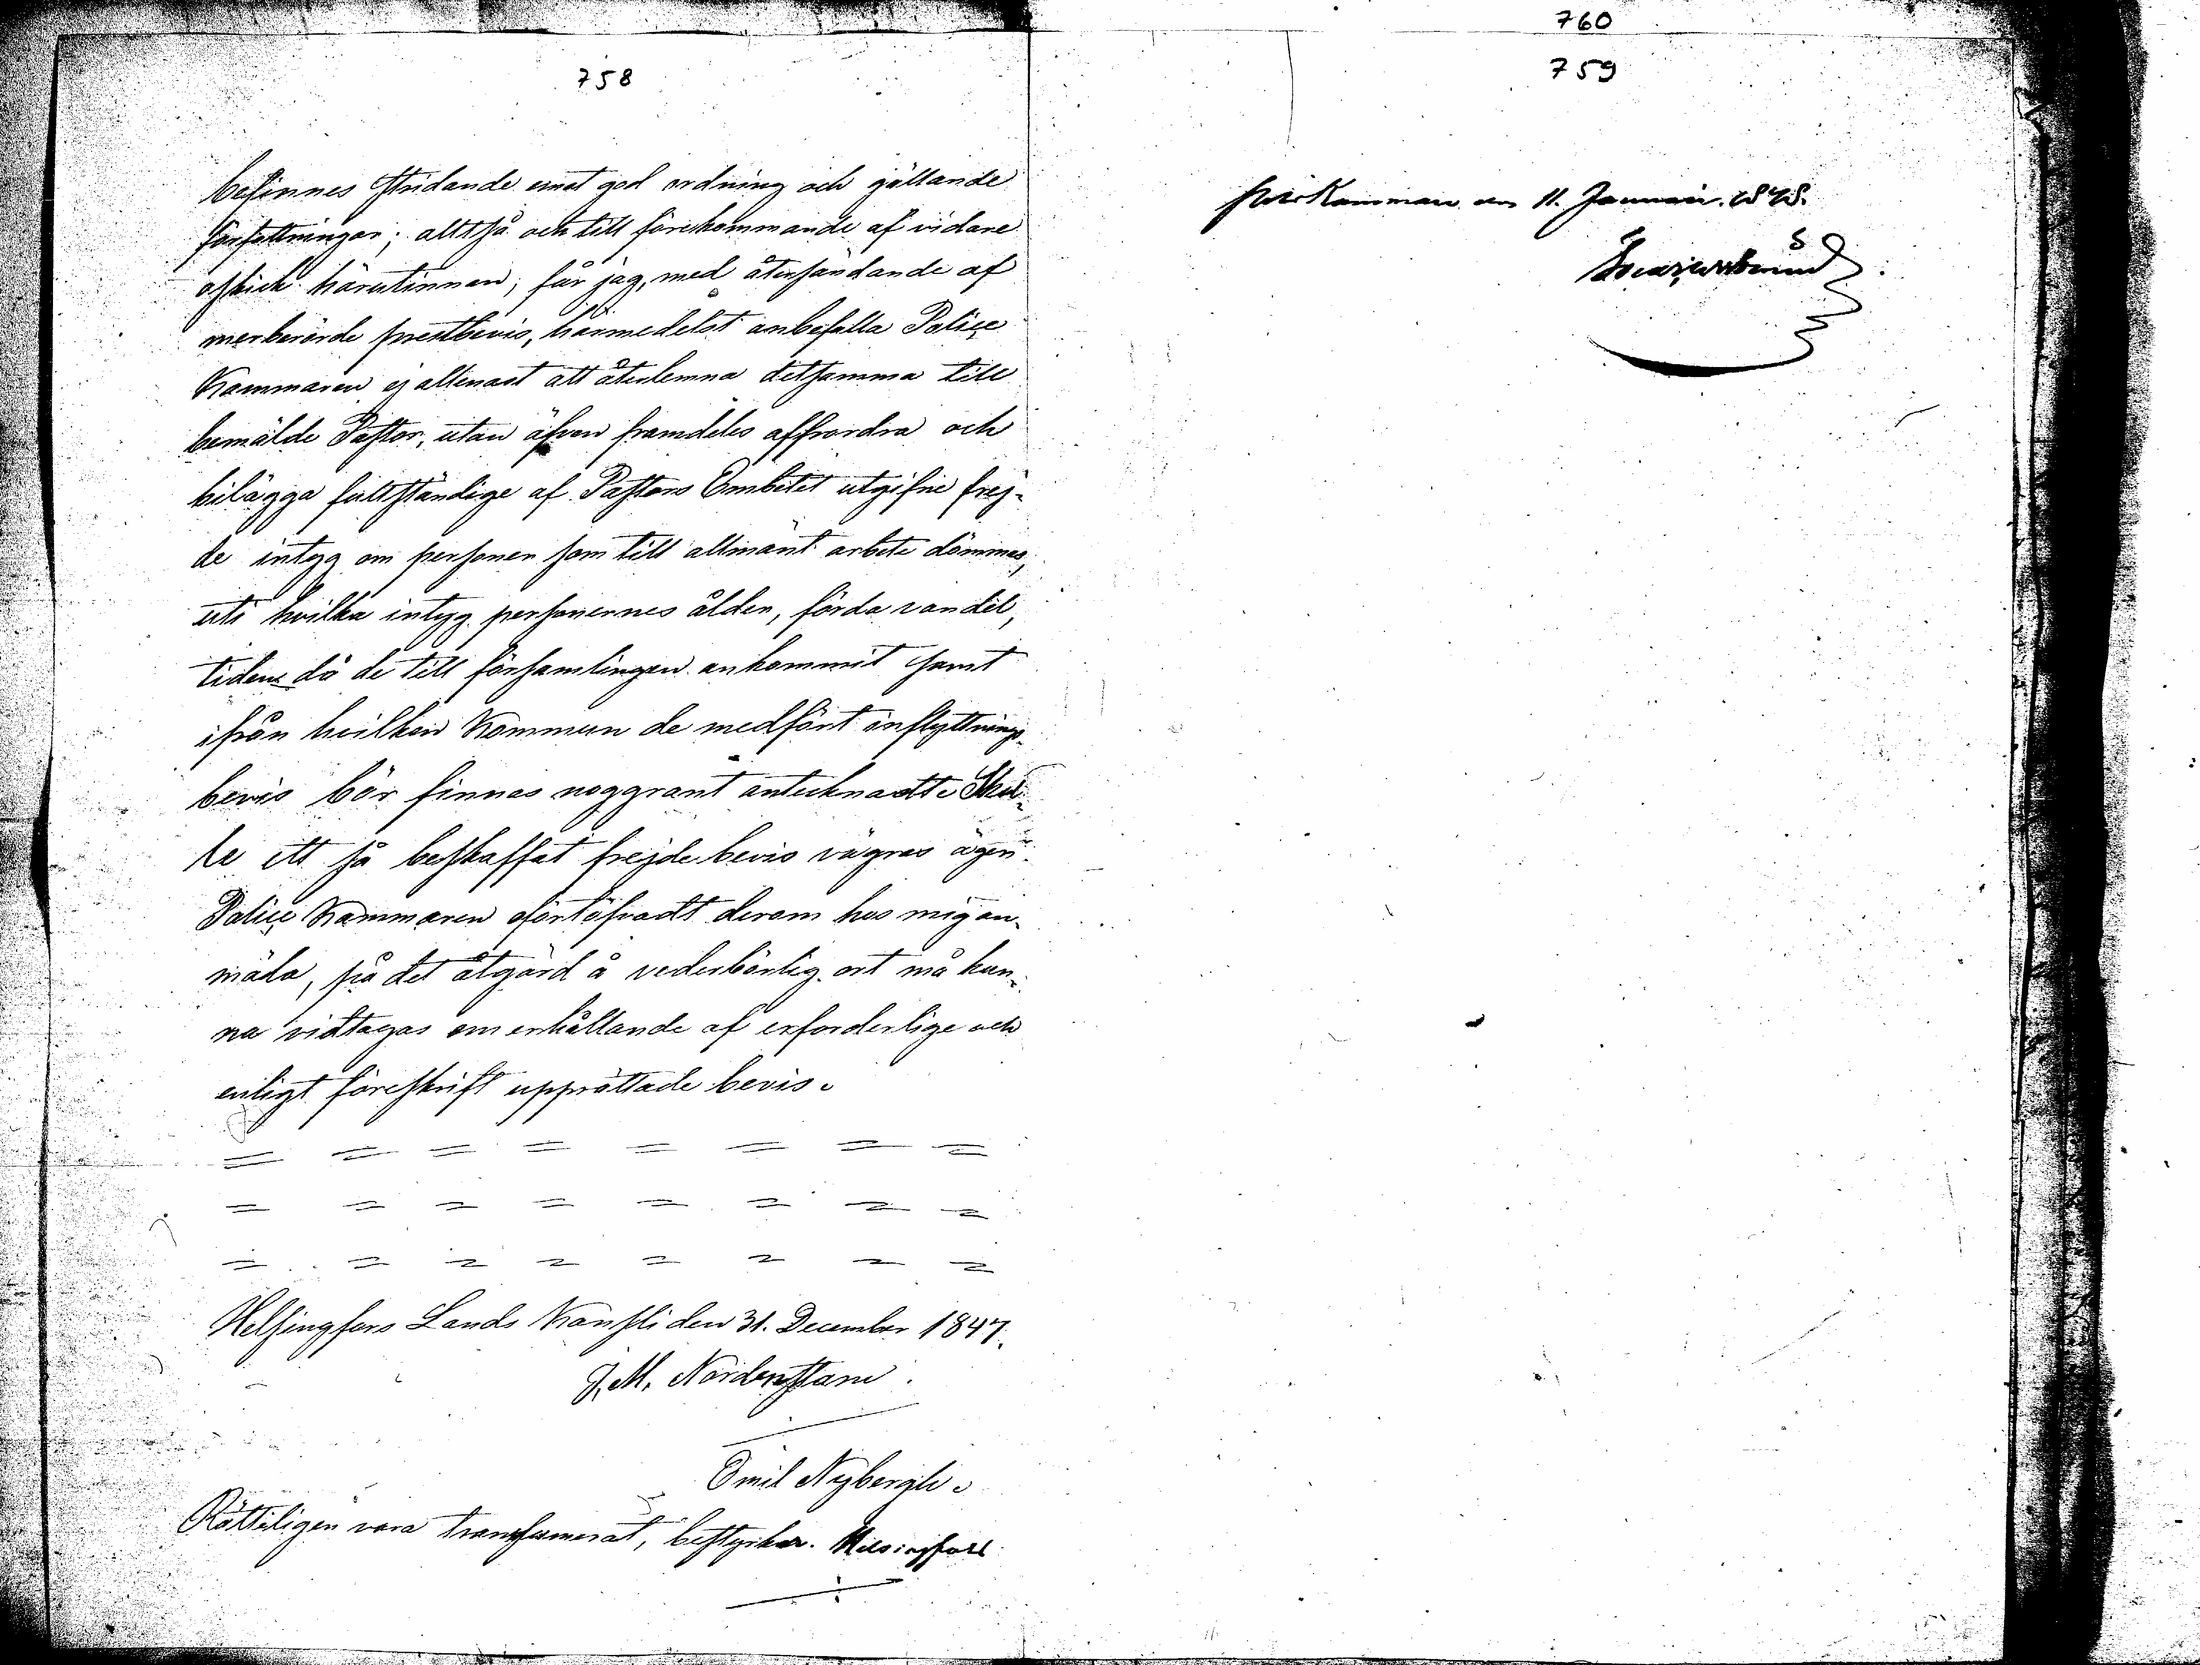 758
befinnes stridande emot god ordning och gällande
författningar; alltså och till förekommande af vidare
oskick härutinnan; får jag, med återsändande af
merberörde prestbevis, härmedelst anbefalla Police
Kammaren ej allenast att återlemna detsamma till
bemälde Pastor, utan äfven framdeles affordra och
bilägga fullständige af Pastors Embetet utgifne frej-
de intyg om personer som till allmänt arbete dömmes,
uti hvilka intyg personernes ålder, förda vandel,
tiden då de till församlingen ankommit samt
ifrån hvilken Kommun de medfört inflyttnings-
bevis bör finnas noggrant antecknadt. Skul-
le ett så beskaffat frejdebevis vägras ägen
Police Kammaren ofördröjadt derom hos mig an-
mäla, på det åtgärd å vederbörlig ort må kun-
na vidtagas om erhållande af erforderlige och
enligt föreskrift upprättade bevis.
Helsingfors Lands Kansli den 31. December 1847.
J. M. Nordenstam.
Emil Nybergh.
Rätteligen vara transsumerat, bestyrker. Helsingfors
760
759
Kammare den 11. Januari 1848.